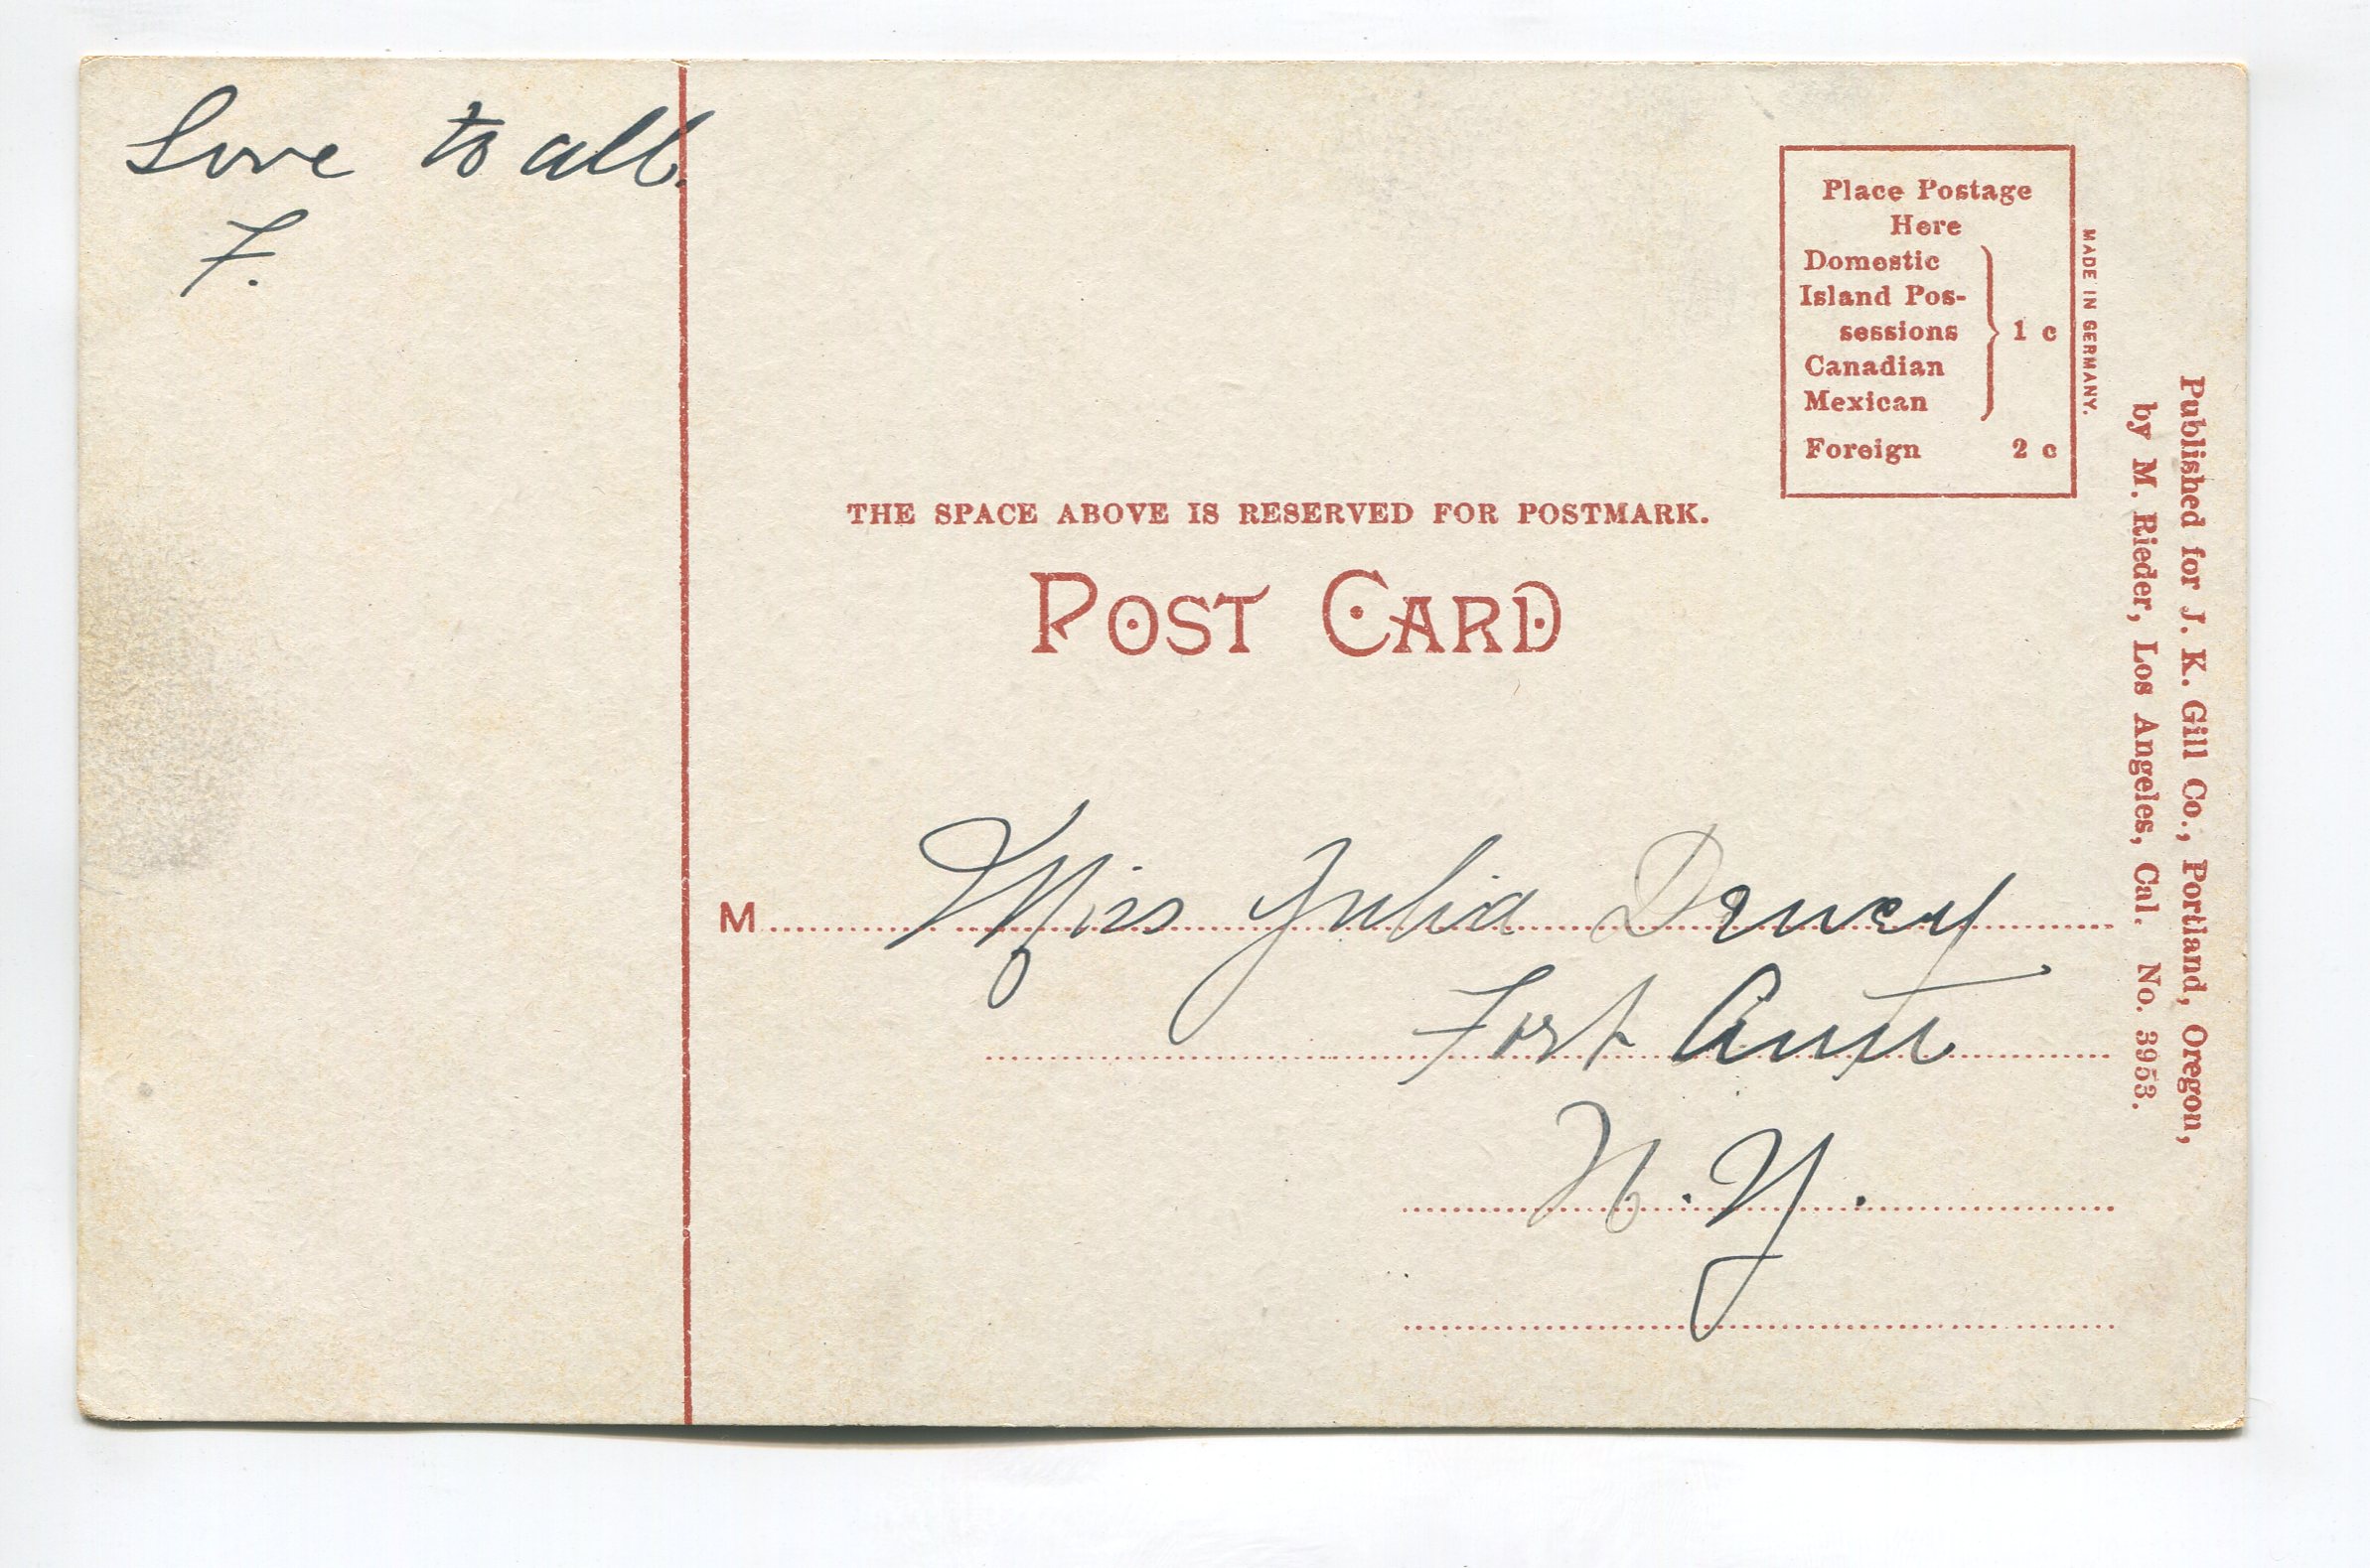 Love to all.
F.
Place Postage
Here
Domestic
Island Pos-
sessions
Canadian
Mexican
1 c
Foreign 2 c
MADE IN GERMANY.
THE SPACE ABOVE IS RESERVED FOR POSTMARK.
POST CARD
M Miss Julia Dewey
Fort Ann
N.Y.
Published for J. K. Gill Co., Portland, Oregon,
by M. Rieder, Los Angeles, Cal. No. 3953.